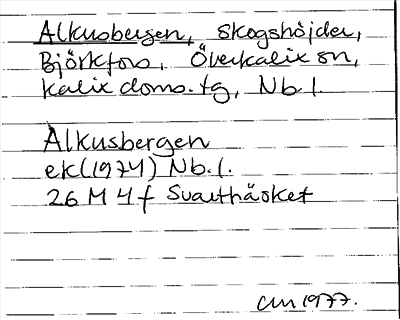 Alkusbergen, skogshöjder,
Björkfors, Överkalix sn,
Kalix doms. tg, Nb. l.
Alkusbergen
ek (1974) Nb. l.
26 M 4 f Svartbäsket
CLM 1977.